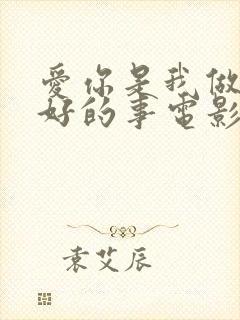 爱你是我做
好的事电影
袁艾辰